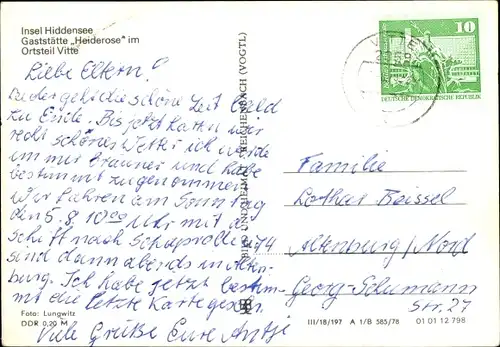 Insel Hiddensee
Gaststätte „Heiderose“ im
Ortsteil Vitte
10
DEUTSCHE DEMOKRATISCHE REPUBLIK
Liebe Eltern!
Leider geht die schöne Zeit bald
zu Ende. Bis jetzt hatten wir
recht schönes Wetter ich werde
immer brauner und habe
bestimmt zugenommen
Wir fahren am Sonntag
den 5.8 10 00 Uhr mit d.
Schiff nach Schaprode
sind dann abends in Alten-
burg. Ich habe jetzt bestimmt
mit die letzte Karte
Viele Grüße Eure Antje
Familie
Lothar Beissel
74
Altenburg/Nord
Georg-Schumann
Str. 27
BILD UND HEIMAT REICHENBACH (VOGTL)
Foto: Lungwitz
DDR 0,20 M
III/18/197 A 1/B 585/78 01 01 12 798